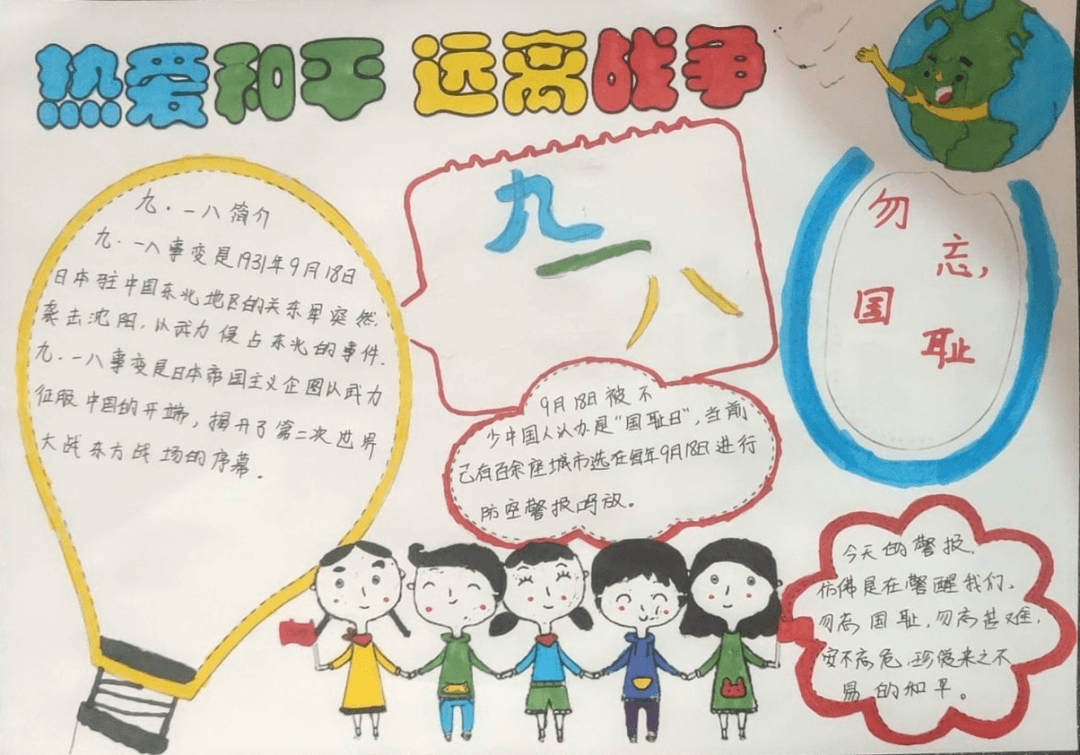 热爱和平 远离战争
九·一八简介
九·一八事变是1931年9月18日
日本驻中国东北地区的关东军突然
袭击沈阳,以武力侵占东北的事件.
九·一八事变是日本帝国主义企图以武力
征服中国的开端,揭开了第二次世界
大战东方战场的序幕。
九一八
9月18日被不
少中国人认为是“国耻日”,当前
已有百余座城市选在每年9月18日进行
防空警报鸣放。
勿忘,
国耻
今天的警报,
仿佛是在警醒我们,
勿忘国耻,勿忘甚难,
安不忘危,珍爱来之不
易的和平。